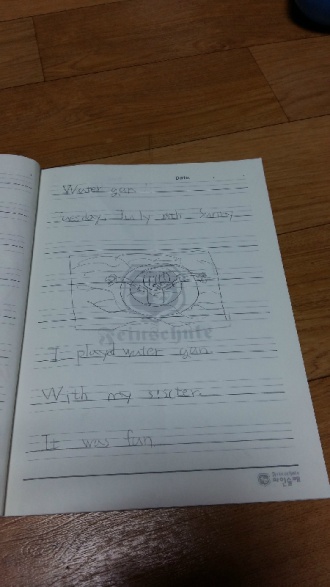 Date
Water gun
Tuesday, July 11th Sunny
Feinschule
I played water gun
With my sister.
It was fun